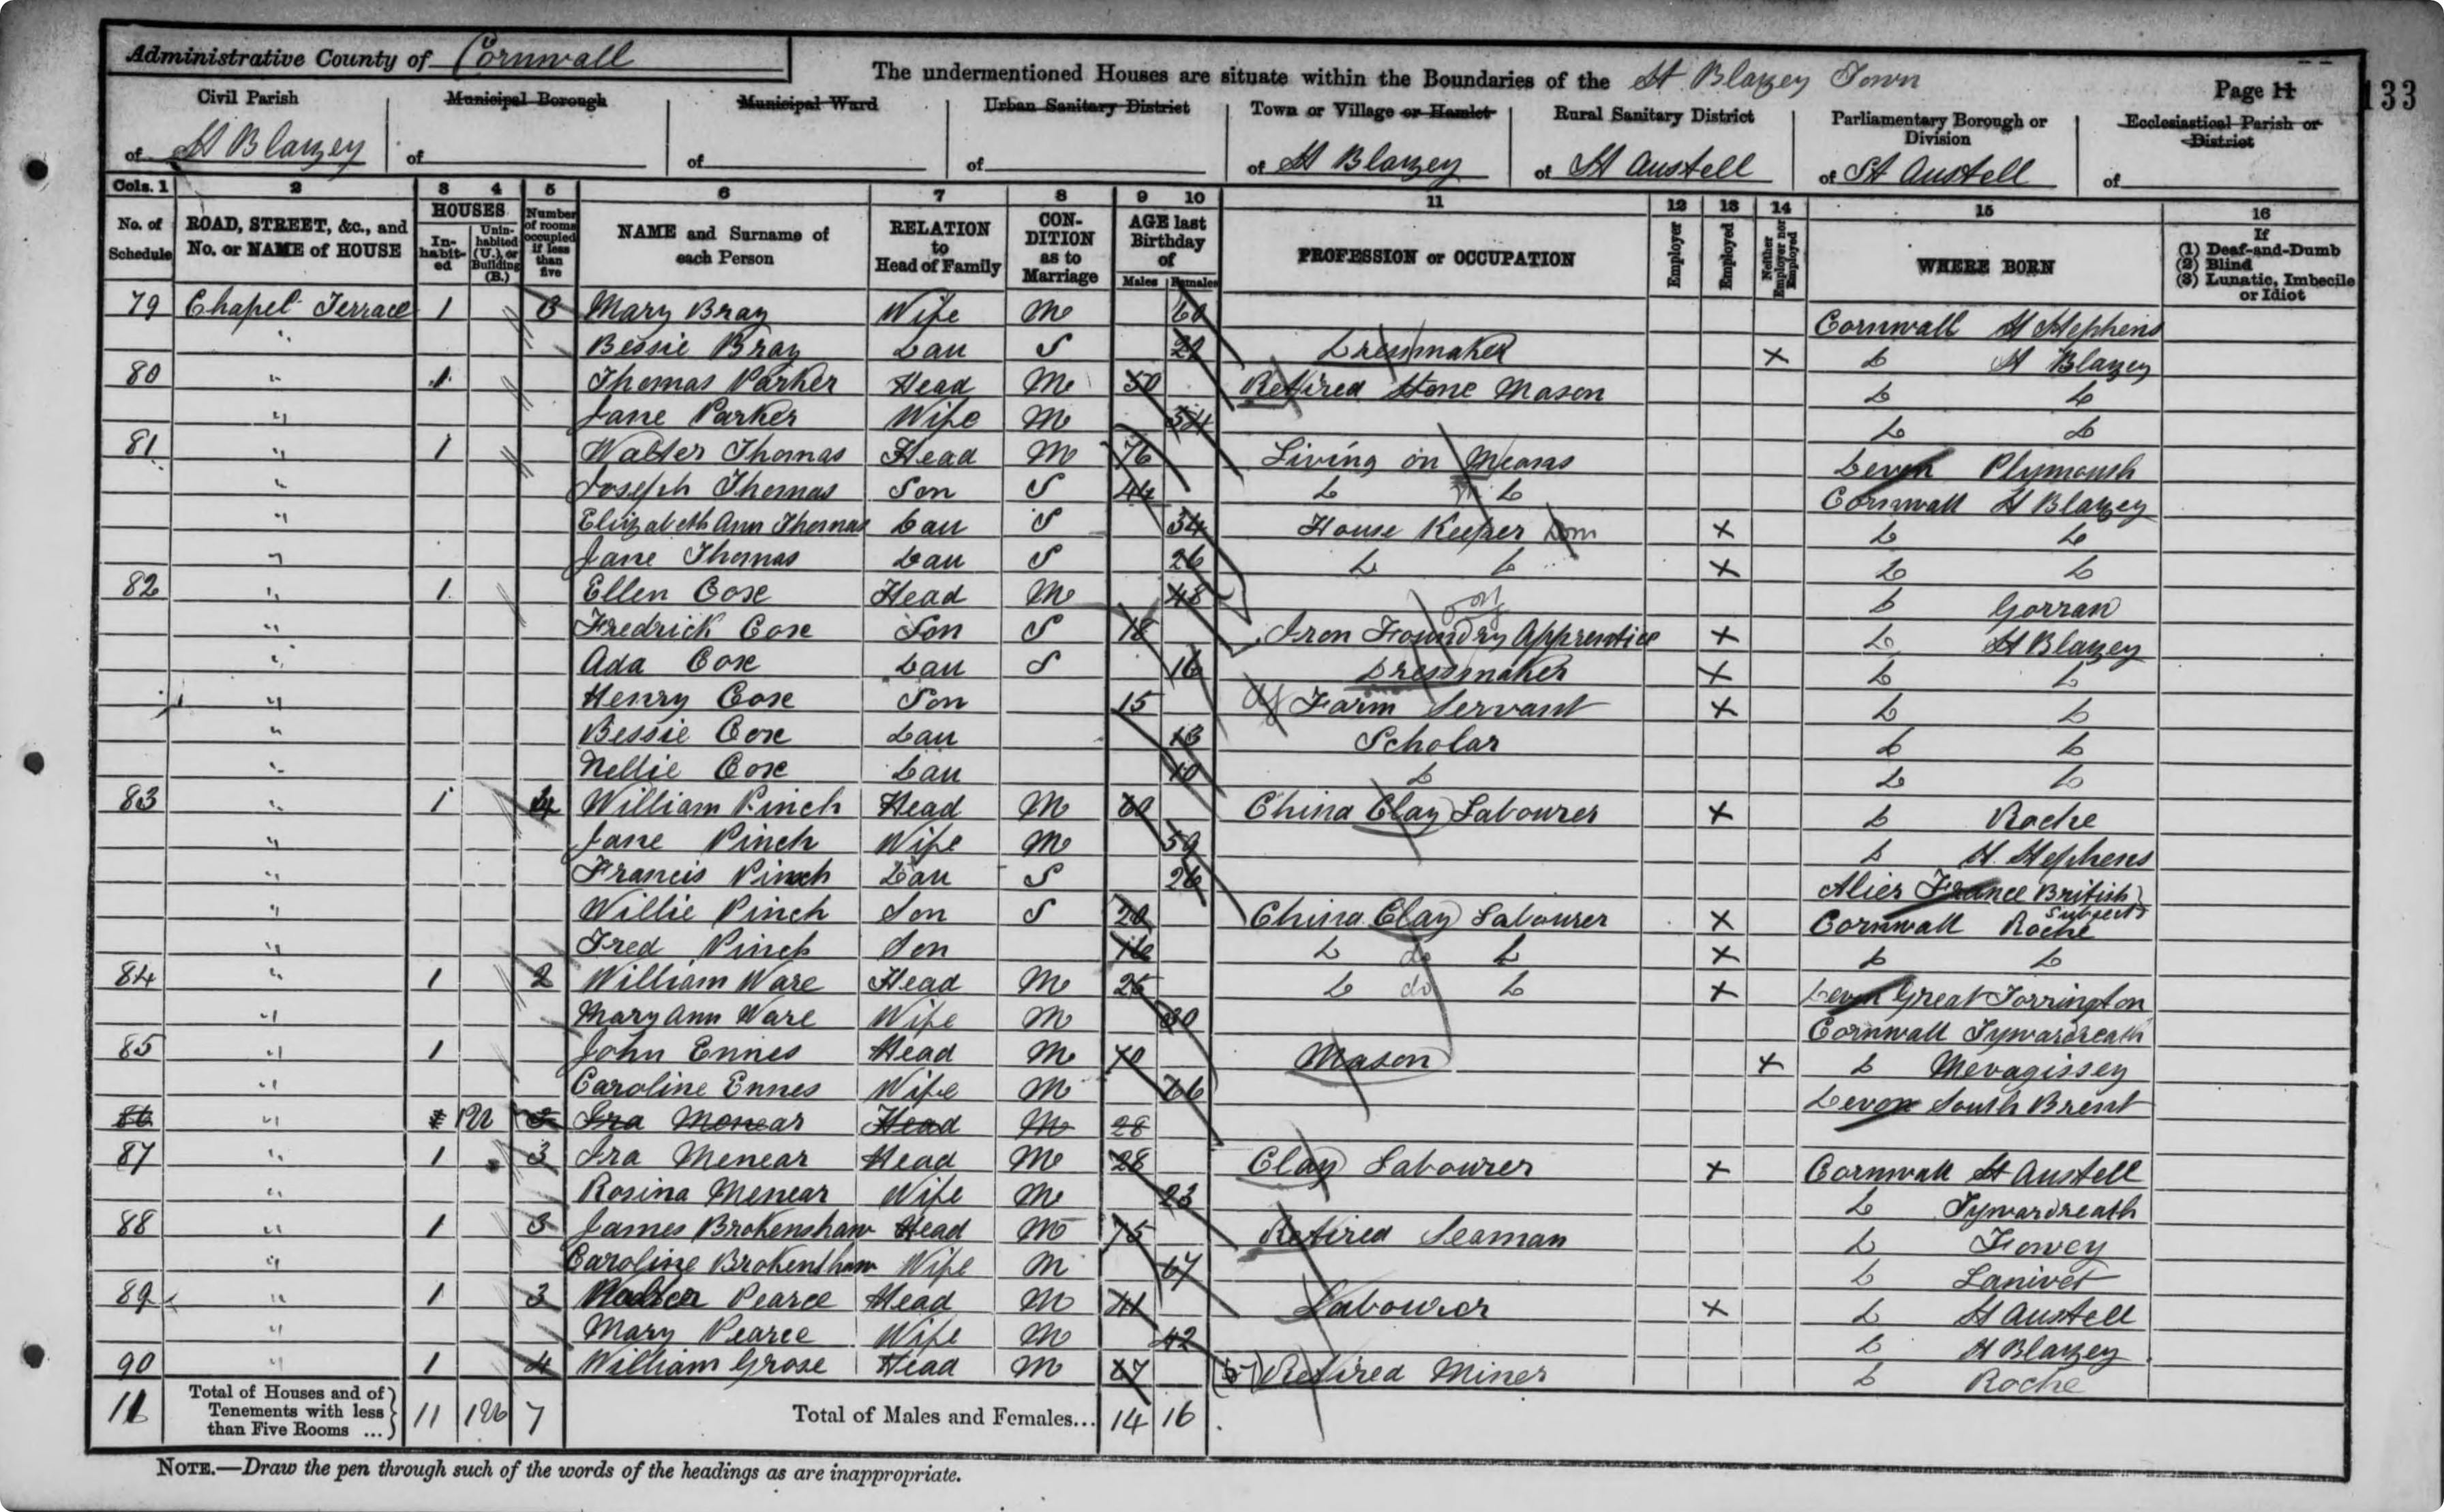 Administrative County of Cornwall
The undermentioned Houses are situate within the Boundaries of the St Blazey Town
Page 11
133
Civil Parish Municipal Borough Municipal Ward Urban Sanitary District Town or Village or Hamlet Rural Sanitary District Parliamentary Borough or Division Ecclesiastical Parish or District
of St Blazey of of of of St Blazey of St Austell of St Austell of
Cols. 1 2 3 4 5 6 7 8 9 10 11 12 13 14 15 16
No. of Schedule ROAD, STREET, &c., and No. or NAME of HOUSE HOUSES In-habit-ed Unin-habited (U.), or Building (B.) Number of rooms occupied if less than five NAME and Surname of each Person RELATION to Head of Family CON-DITION as to Marriage AGE last Birthday of Males Females PROFESSION or OCCUPATION Employer Employed Neither Employer nor Employed WHERE BORN If (1) Deaf-and-Dumb (2) Blind (3) Lunatic, Imbecile or Idiot
79 Chapel Terrace 1 3 Mary Bray Wife M 60 Cornwall St Stephens
" Bessie Bray Dau S Dressmaker X Do St Blazey
80 " 1 Thomas Parker Head M 50 Retired Stone Mason Do Do
" Jane Parker Wife M 54 Do Do
81 " 1 Walter Thomas Head M 76 Living on Means Devon Plymouth
" Joseph Thomas Son S 44 Do Do Cornwall St Blazey
" Elizabeth Ann Thomas Dau S 34 House Keeper Dom X Do Do
" Jane Thomas Dau S 26 Do Do X Do Do
82 " 1 Ellen Cose Head M 48 Do Gorran
" Fredrick Cose Son S 18 Iron Foundry Apprentice X Do St Blazey
" Ada Cose Dau S 16 Dressmaker X Do Do
" Henry Cose Son 15 Ag Farm Servant X Do Do
" Bessie Cose Dau 13 Scholar Do Do
" Nellie Cose Dau 10 Do Do Do
83 " 1 4 William Pinch Head M 60 China Clay Labourer X Do Roche
" Jane Pinch Wife M 59 Do St. Stephens
" Francis Pinch Dau S 26 Alies France British Subject
" Willie Pinch Son S 20 China Clay Labourer X Cornwall Roche
" Fred Pinch Son 16 Do do Do X Do Do
84 " 1 2 William Ware Head M 25 Do do Do X Devon Great Torrington
" Mary Ann Ware Wife M 30 Cornwall Tywardreath
85 " 1 John Ennes Head M 70 Mason X Do Mevagissey
" Caroline Ennes Wife M 66 Devon South Brent
86 " 1 Ira Menear Head M 28
87 " 1 3 Ira Menear Head M 28 Clay Labourer X Cornwall St Austell
" Rosina Menear Wife M 23 Do Tywardreath
88 " 1 3 James Brokenshaw Head M 75 Retired Seaman Do Fowey
" Caroline Brokenshaw Wife M 67 Do Lanivet
89 " 1 3 Pearce Head M 41 Labourer X Do St Austell
" Mary Pearce Wife M 42 Do St Blazey
90 " 1 4 William Grose Head M 67 Retired Miner Do Roche
Total of Houses and of Tenements with less than Five Rooms ... 11 7 Total of Males and Females... 14 16
NOTE.—Draw the pen through such of the words of the headings as are inappropriate.